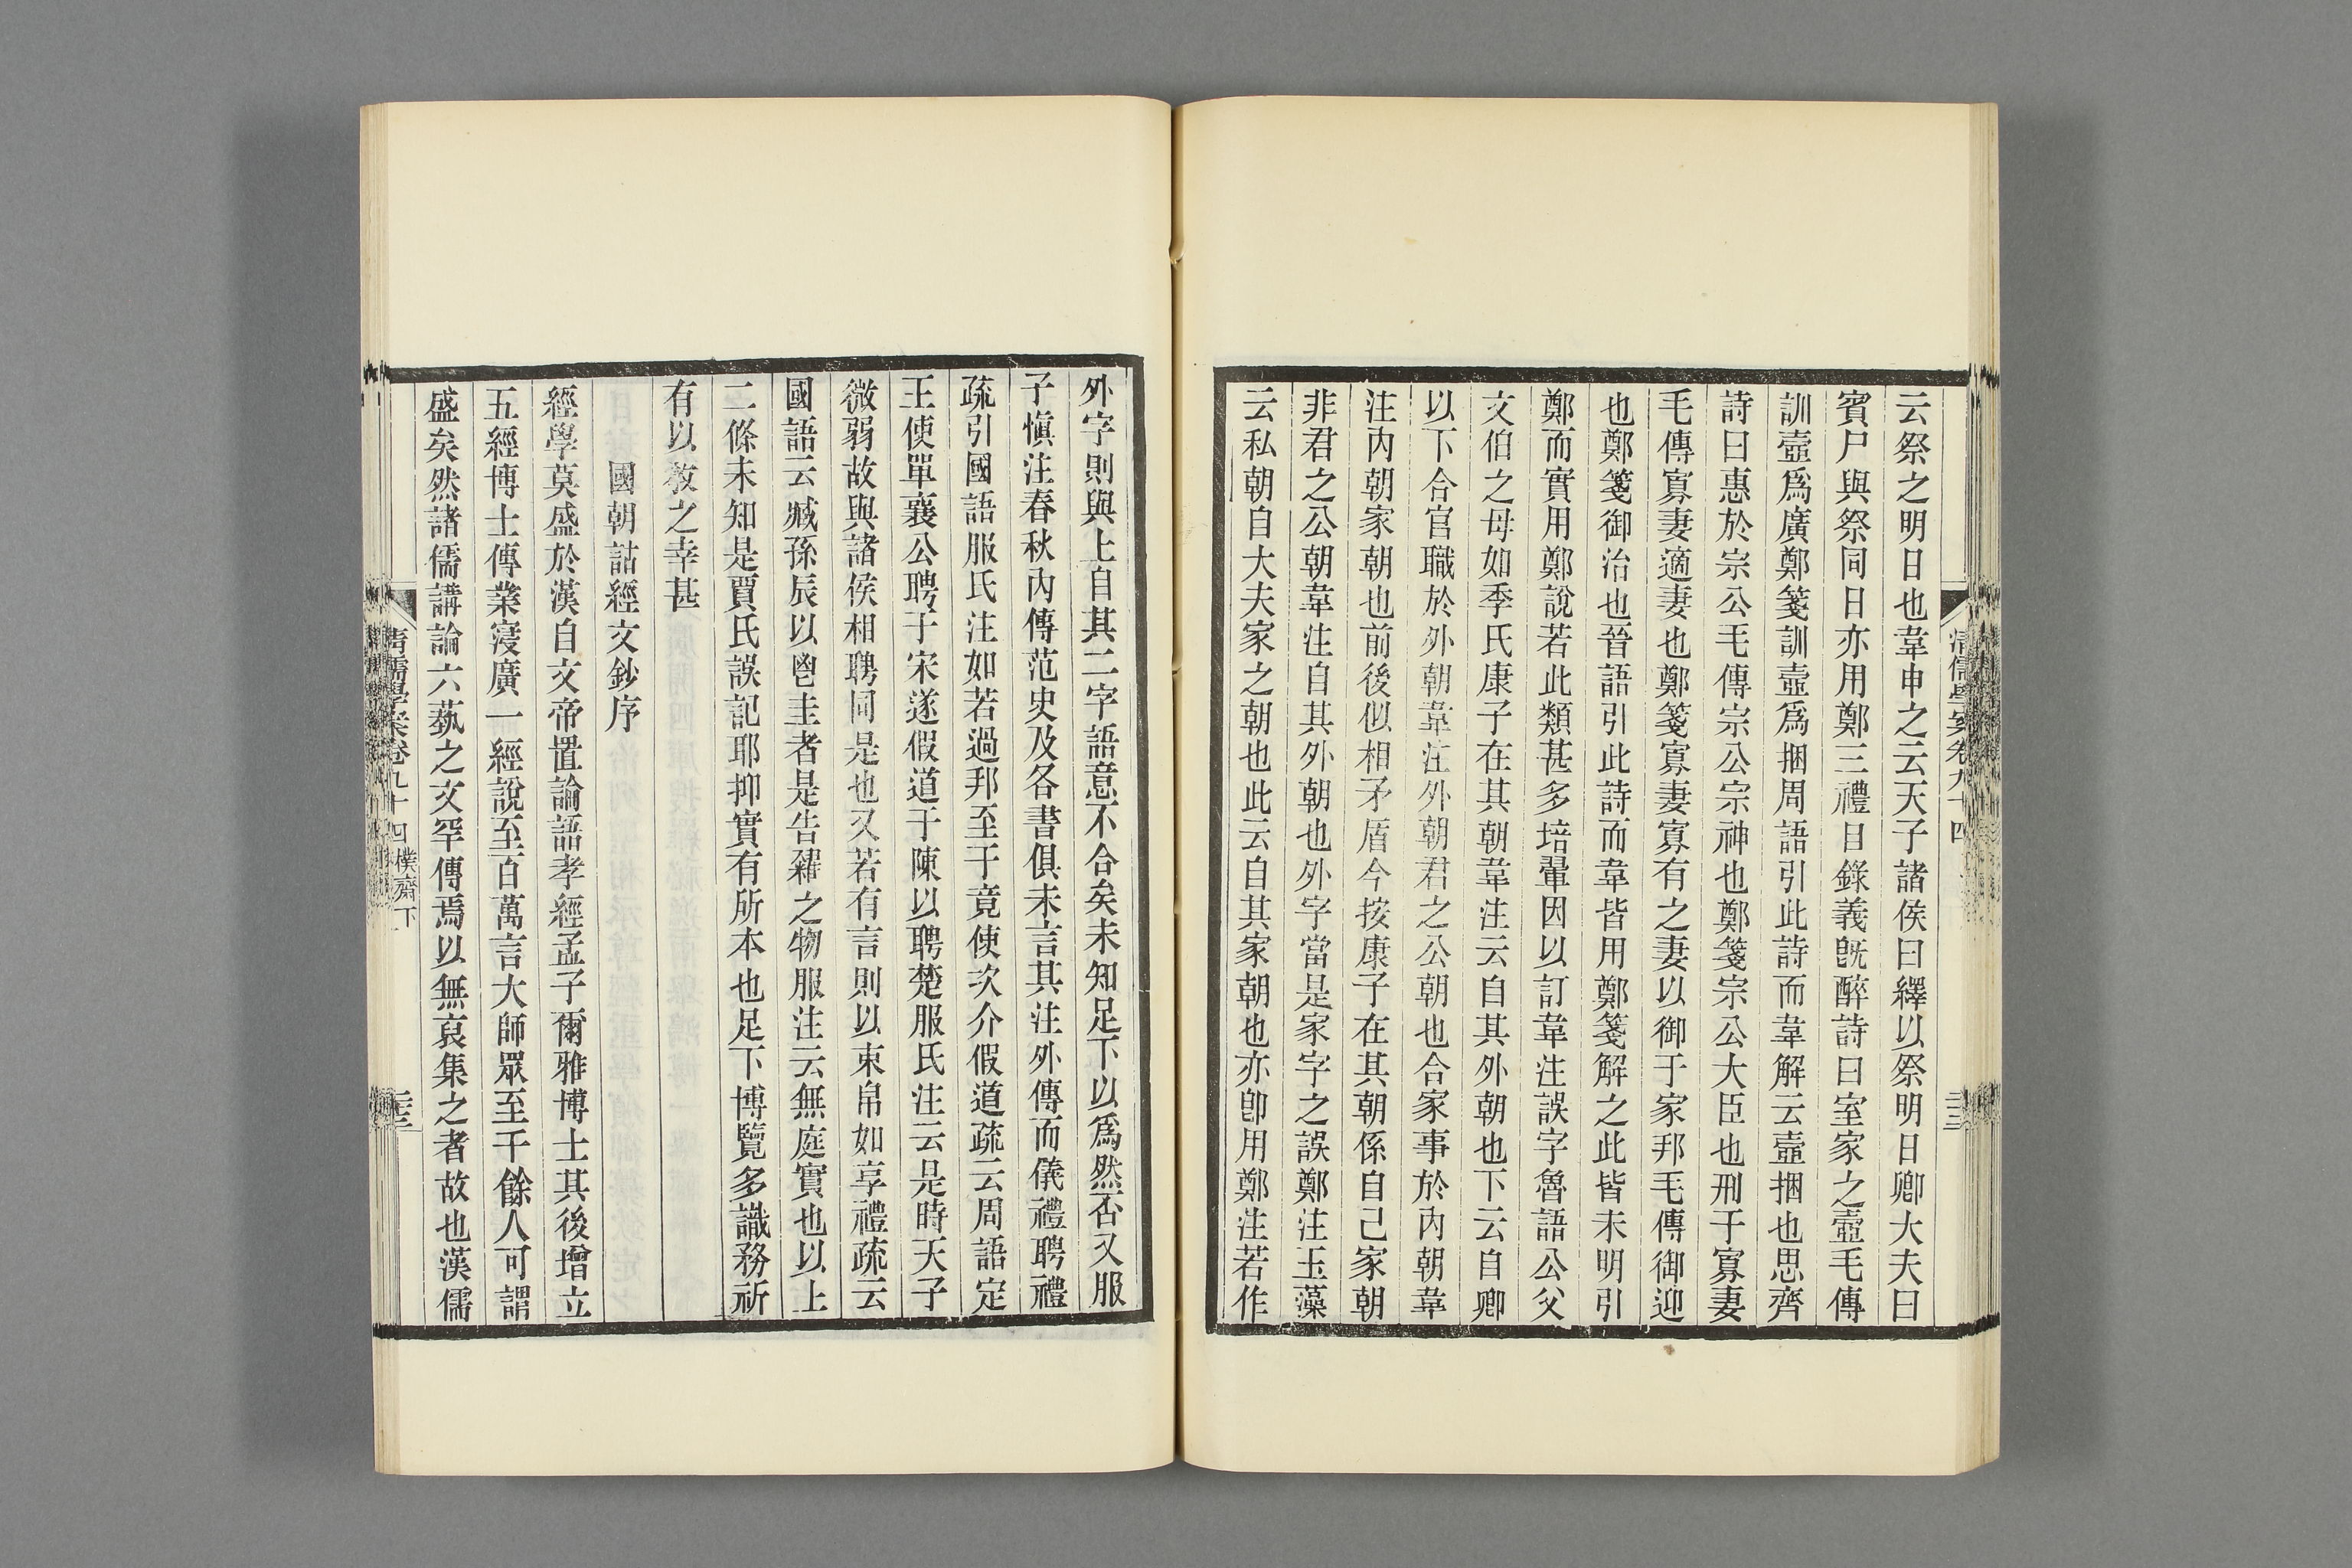 云祭之明日也韋申之云天子諸侯曰繹以祭明日卿大夫曰
賓尸與祭同日亦用鄭三禮目錄義旣醉詩曰室家之壼毛傳
訓壼爲廣鄭箋訓壼爲捆周語引此詩而韋解云壼捆也思齊
詩曰惠於宗公毛傳宗公宗神也鄭箋宗公大臣也刑于寡妻
毛傳寡妻適妻也鄭箋寡妻寡有之妻以御于家邦毛傳御迎
也鄭箋御治也晉語引此詩而韋皆用鄭箋解之此皆未明引
鄭而實用鄭說若此類甚多培翬因以訂韋注誤字魯語公父
文伯之母如季氏康子在其朝韋注云自其外朝也下云自卿
以下合官職於外朝韋注外朝君之公朝也合家事於內朝韋
注內朝家朝也前後似相矛盾今按康子在其朝係自己家朝
非君之公朝韋注自其外朝也外字當是家字之誤鄭注玉藻
云私朝自大夫家之朝也此云自其家朝也亦卽用鄭注若作
清儒學案卷九十四
三三
外字則與上自其二字語意不合矣未知足下以爲然否又服
子愼注春秋內傳范史及各書俱未言其注外傳而儀禮聘禮
疏引國語服氏注如若過邦至于竟使次介假道疏云周語定
王使單襄公聘于宋遂假道于陳以聘楚服氏注云是時天子
微弱故與諸侯相聘同是也又若有言則以束帛如享禮疏云
國語云臧孫辰以鬯圭者是告糴之物服注云無庭實也以上
二條未知是賈氏誤記耶抑實有所本也足下博覽多識務祈
有以敎之幸甚
國朝詁經文鈔序
經學莫盛於漢自文帝置論語孝經孟子爾雅博士其後增立
五經博士傳業寖廣一經說至百萬言大師眾至千餘人可謂
盛矣然諸儒講論六蓺之文罕傳焉以無裒集之者故也漢儒
清儒學案卷九十四 樸齋下